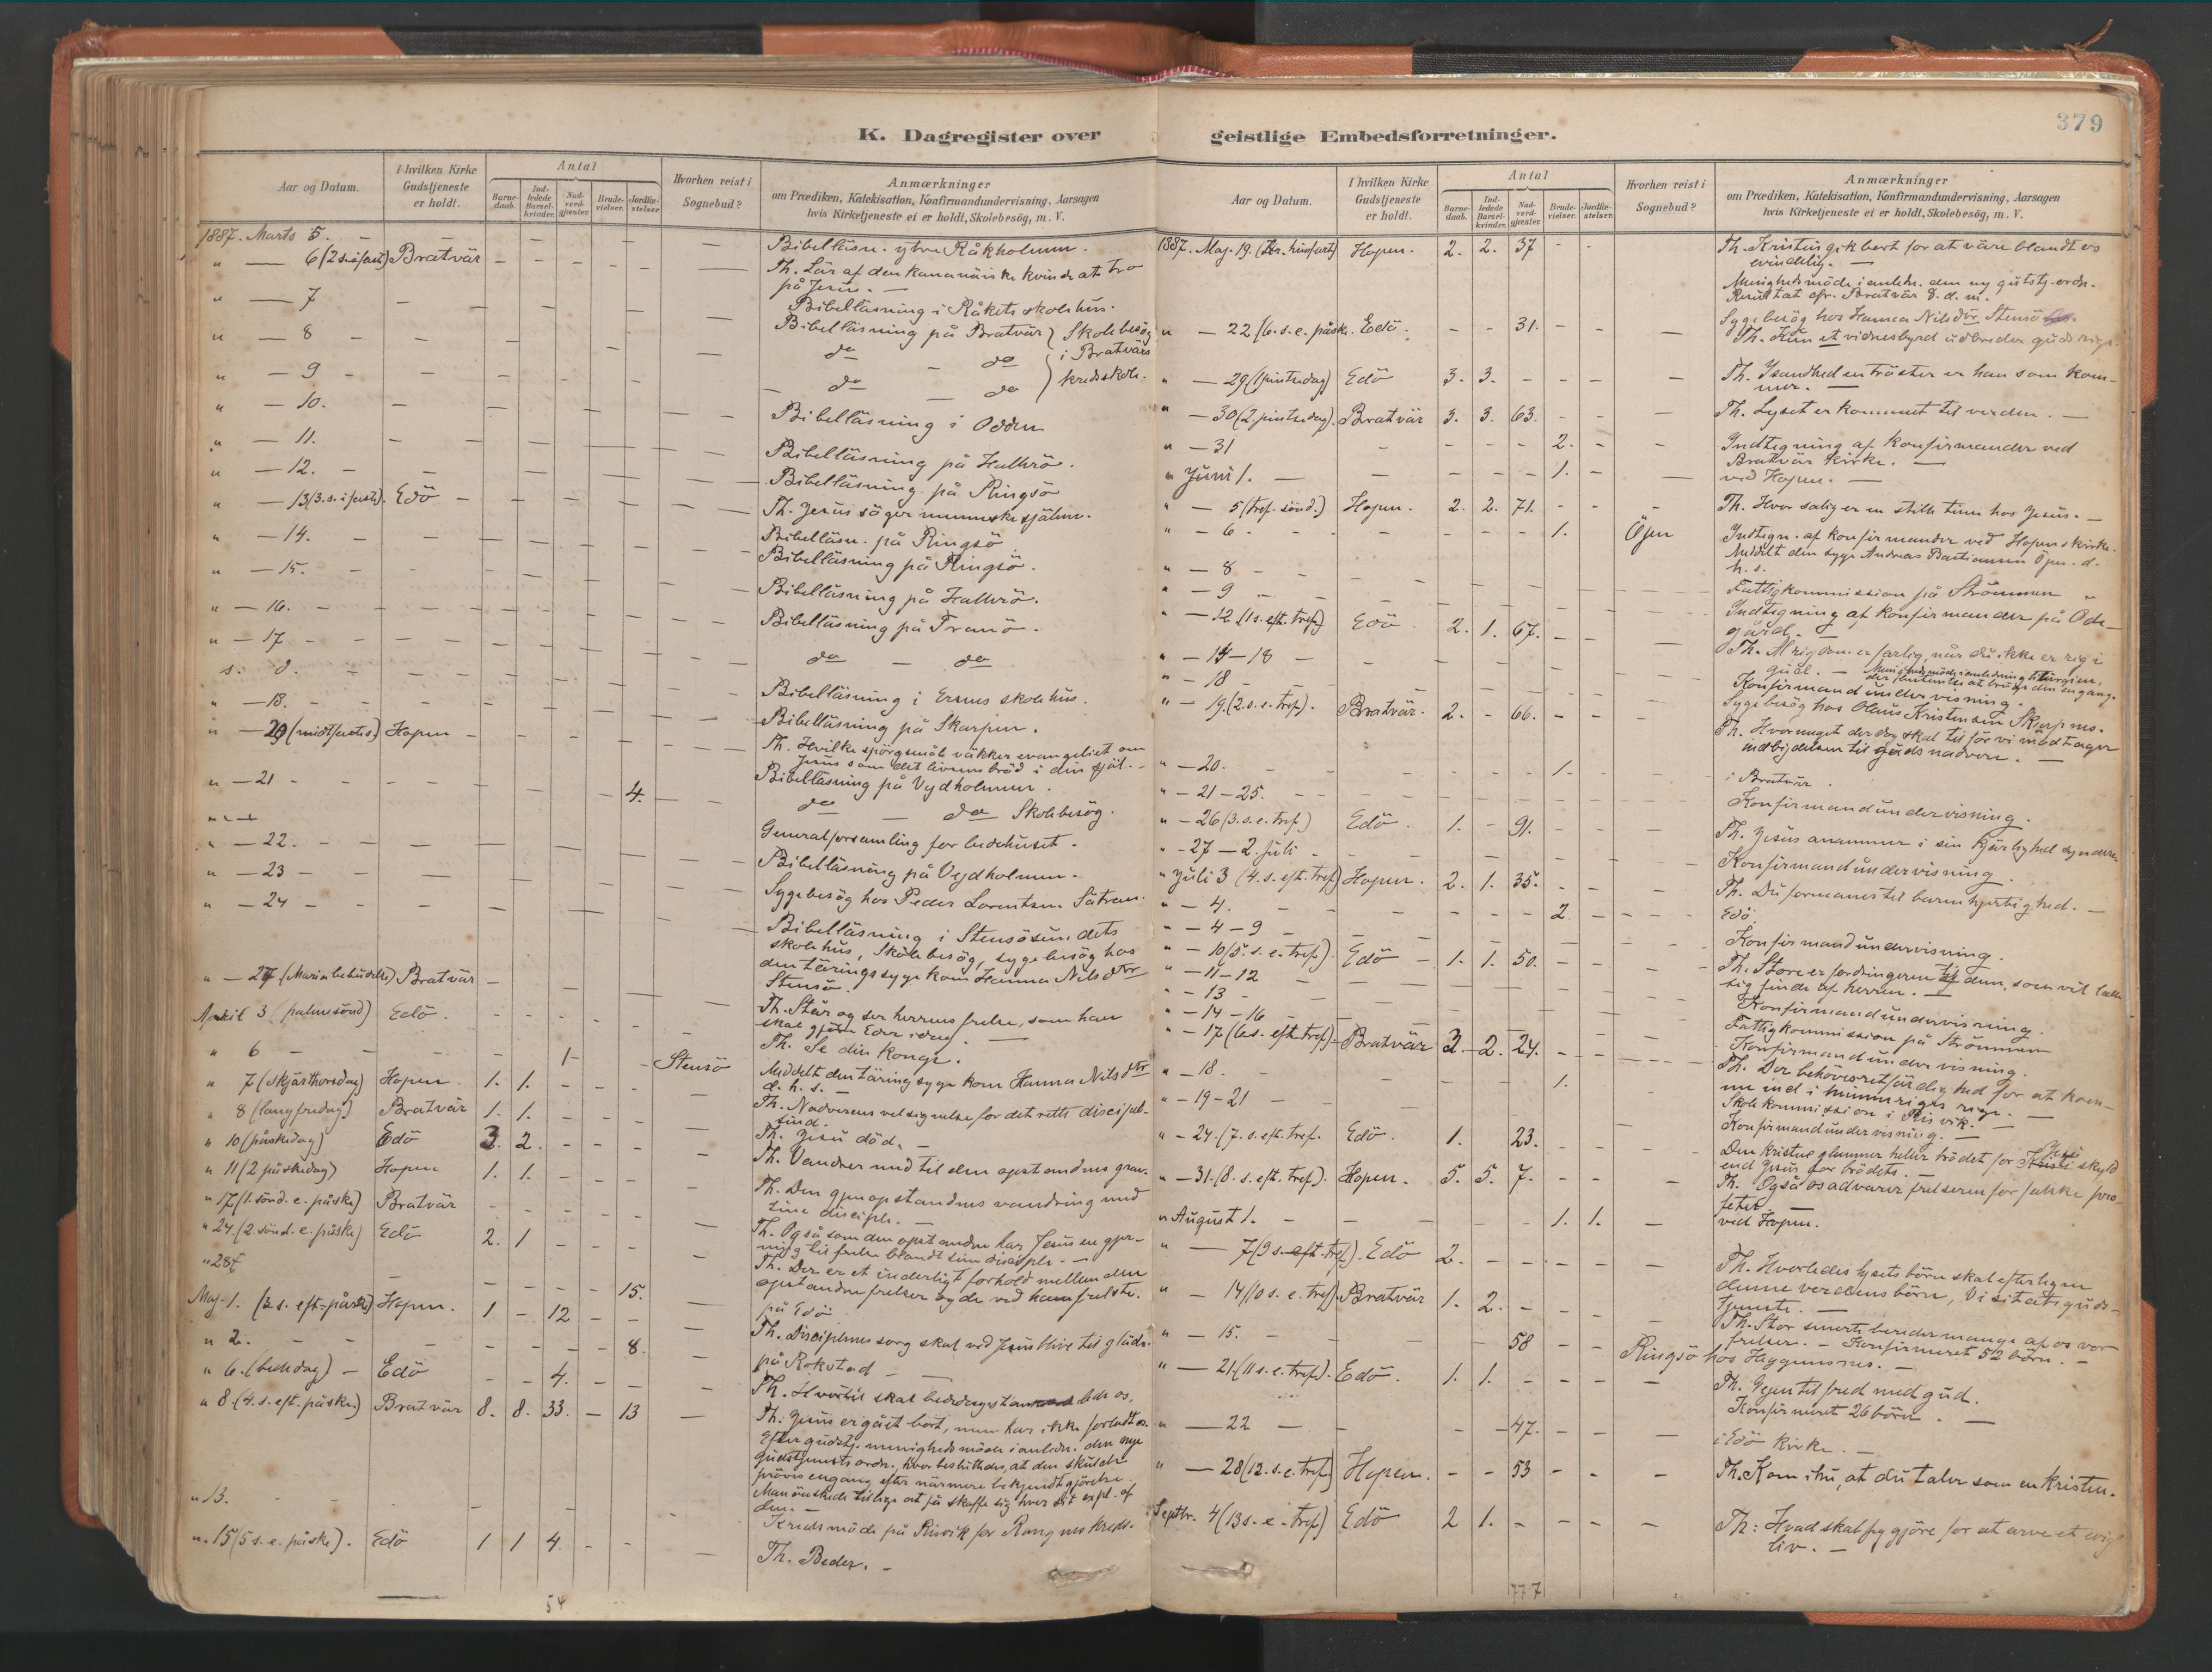 K. Dagregister over
Aar og Datum. I hvilken Kirke Gudstjeneste er holdt. Antal Barne-daab. Ind-ledede Barsel-kvinder. Nad-verd-gjester. Brude-vielser. Jordfæ-stelser. Hvorhen reist i Sognebud? Anmærkninger om Prædiken, Katekisation, Konfirmandundervisning, Aarsagen hvis Kirketjeneste ei er holdt, Skolebesög, m. V.
1887. Marts 5. Bibelläsn. ytre Råkholmen.
" — 6 (2 s. i fast) Bratvär Th. Lär af den kananäiske kvinde at tro
på Jesus. —
" — 7 Bibelläsning i Råkets skolehus.
" — 8 Bibelläsning på Bratvär } Skolebesög
" — 9 do — do i Bratvärs
" — 10. do — do kredsskole.
" — 11. Bibelläsning i Odden
" — 12. Bibelläsning på Hallvrö.
Bibelläsning på Ringsö
" — 13 (3. s. i faste). Edö Th. Jesus söger menneskesjälene.
" — 14. Bibelläsn. på Ringsö
" — 15. Bibelläsning på Ringsö.
" — 16. Bibelläsning på Hallvrö.
" — 17 Bibelläsning på Tranö.
s. d. do — do
" — 18. Bibelläsning i Ernes skolehus.
Bibelläsning på Skarpen.
" — 20 (midtfastes.) Hopen Th. Hvilke spörgsmål väkker evangeliet om
Jesus som det livsens bröd i din själ. —
" — 21 4. Bibelläsning på Vejdholmen.
do — do Skolebesög.
" — 22. Generalforsamling for bedehuset.
" — 23 Bibelläsning på Vejdholmen.
" — 24 Sygebesög hos Peder Lorentsen Sätran.
Bibelläsning i Stensösundets
skolehus, Skolebesög, sygebesög hos
den täringssyge kone Hanna Nilsdtr
Stensö.
" — 27 (Marie budelse) Bratvär Th. Står og ser herrens frelse, som han
skal gjöre Eder idag. —
April 3 (palmesönd) Edö. Th. Se din konge.
" 6 1 Stensö Meddelt den täringssyge kone Hanna Nilsdtr
d. h. s. —
" 7 (skjärthorsdag) Hopen. 1. 1. Th. Nadverens velsignelse for det rette discipel-
sind.
" 8 (langfredag) Bratvär 1. 1. Th. Jesu död. —
" 10 (påskedag) Edö 3. 2. Th. Vandrer med til den opstandnes grav.
" 11 (2 påskedag) Hopen 1. 1. Th. Den gjenopstandnes vandring med
sine disciple. —
" 17 (1. sönd. e. påske) Bratvär Th. Også som den opstandne har Jesus en gjer-
ning til frelse blandt sine disciple. —
" 24. (2. sönd. e. påske) Edö 2. 1 Th. Der er et inderligt forhold mellem den
opstandne frelser og de ved ham frelste.
" 28 15. på Edö
Maj. 1. (3 s. eft. påske) Hopen. 1 — 12 Th. Disciplenes sorg skal ved Jesus blive til gläde.
" 2. 8. på Rokstad —
" 6. (bededag) — Edö 4. Th. Hvortil skal bededagstanken lede os.
" 8. (4. s. eft. påske.) Bratvär 8. 8. 33. — 13 Th: Jesus er gået bort, men har ikke forladt os.
Efter gudstj. menighedsmöde i anledn. den nye
gudstjenests ordn., hvor besluttedes, at den skulde
pröves engang efter närmere bekjendtgjörelse.
Man önskede tillige at få skaffe sig hver sit expl. af
den. —
" 13. Kredsmöde på Risvik for Rangnes kreds.
" 15 (5 s. e. påske). Edö 1 1 4. Th. Beder. —
54
geistlige Embedsforretninger.
379
Aar og Datum. I hvilken Kirke Gudstjeneste er holdt. Antal Barne-daab. Ind-ledede Barsel-kvinder. Nad-verd-gjester. Brude-vielser. Jordfæ-stelser. Hvorhen reist i Sognebud? Anmærkninger om Prædiken, Katekisation, Konfirmandundervisning, Aarsagen hvis Kirketjeneste ei er holdt, Skolebesög, m. V.
1887. Maj. 19. (Kr. himfart) Hopen. 2. 2. 37 Th. Kristus gik bort for at väre blandt os
evindelig. —
Menighedsmöde i anledn. den ny gudstj. ordn.
Resultat ofr. Bratvär 8. d. m.
Sygebesög hos Hanna Nilsdtr Stensö
" — 22 (6. s. e. påske. Edö. 31. Th. Kun et vidnesbyrd udbreder guds rige.
" — 29 (1 pintsedag) Edö 3. 3. Th. Isandhed en tröster er han som kom-
mer. —
" — 30 (2. pintsedag). Bratvär 3. 3. 63. Th. Lyset er kommet til verden. —
" — 31 2. Indtegning af konfirmander ved
Bratvär kirke. —
" Juni 1. 1. ved Hopen. —
" — 5 (tref. sönd.) Hopen. 2. 2. 71. Th. Hvor salig er en stille time hos Jesus. —
" — 6. 1. Öjen Indtegn. af konfirmander ved Hopens kirke.
Meddelt den syge Andreas Bastiansen Öjen. d.
h. s.
" — 8 Fattigkommission på Strömmen
" — 9 Indtegning af konfirmander på Ode-
gård. —
" — 12 (1 s. eft. tref.) Edö 2. 1. 67. Th. Al rigdom er farlig, når du ikke er rig i
gud. — Menighedsmöde i anledning liturgien,
der besluttedes at bruge den engang.
" — 14 — 18 Konfirmandundervisning.
" — 18 Sygebesög hos Olaus Kristensen Skarpnes.
" — 19. (2. s. e. tref). Bratvär. 2. — 66. Th. Hvor meget der dog skal til för vi modtager
indbydelsen til guds nadvere. —
" — 20. 1. i Bratvär.
" — 21 — 25. Konfirmandundervisning.
" — 26 (3. s. e. tref.) Edö. 1. — 91. Th. Jesus anammer i sin kjärlighed syndere.
" — 27 — 2. Juli Konfirmandundervisning.
" Juli 3 (4. s. eft. tref) Hopen. 2. 1. 35. Th. Du formanes til barmhjertighed. —
" — 4. 2. Edö.
" — 4 — 9 Konfirmandundervisning.
" — 10 (5. s. e. tref.) Edö 1. 1. 50. Th. Store er fordringerne til dem, som vil lade
sig finde af herren. —
" — 11 — 12 Konfirmandundervisning.
" — 13 Fattigkommission på Strömmen
" — 14 — 16 Konfirmandundervisning.
" — 17 (6 s. eft. tref.) Bratvär 3. 2. 24. Th. Der behöves retfärdighed for at kom-
me ind i himmeriges rige. —
" — 18. 1. Skolekommission i Risvik. —
" — 19 — 21 Konfirmandundervisning. —
" — 24. (7. s. eft. tref. Edö. 1. 23. Den kristne glemmer heller brödet for Jesu skyld
end Jesus for brödets. —
" — 31. (8. s. eft. tref). Hopen. 5. 5. 7. Th. Også os advarer frelseren for falske pro-
feter —
" August 1. 1. 1. ved Hopen.
" — 7 (9 s. eft. tref). Edö 2. Th. Hvorledes lysets börn skal efterligne
denne verdens börn, Visitatsguds-
tjeneste. —
" — 14 (10 s. e. tref) Bratvär 1. 2. Th. Stor smerte bereder mange af os vor
frelser. — Konfirmeret 52 börn. —
" — 15. 58 Ringsö hos Haggensnes. —
" — 21 (11 s. e. tref). Edö. 1. 1. Th. Jesus til fred med gud.
Konfirmeret 26 börn. —
" — 22 47. i Edö kirke. —
" — 28 (12. s. e. tref) Hopen. 53 Th. Kom ihu, at du taler som en kristen.
Septbr. 4 (13 s. e. tref) Edö 2 1. Th: Hvad skal jeg gjöre for at arve et evigt
liv. —
777